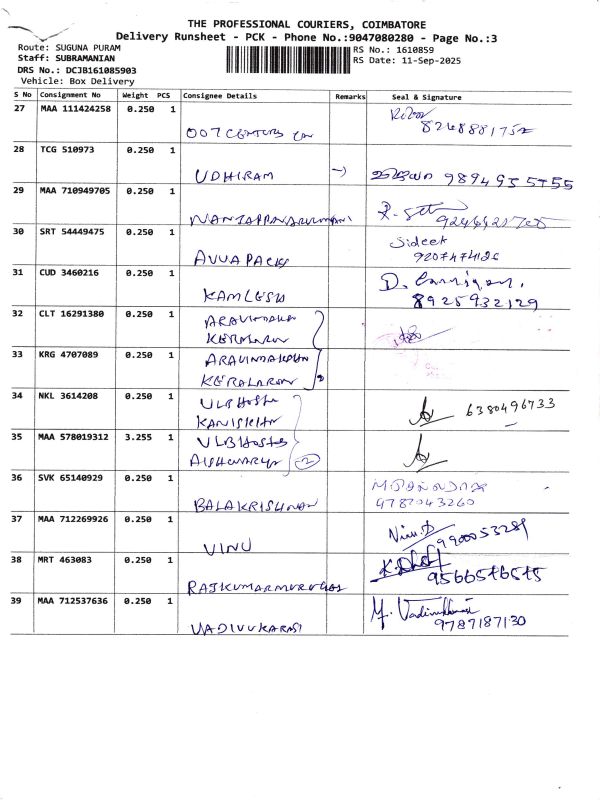 THE PROFESSIONAL COURIERS, COIMBATORE
Delivery Runsheet - PCK - Phone No.:9047080280 - Page No.:3
Route: SUGUNA PURAM
RS No.: 1610859
Staff: SUBRAMANIAN
RS Date: 11-Sep-2025
DRS No.: DCJB161085903
Vehicle: Box Delivery
S No Consignment No Weight PCS Consignee Details Remarks Seal & Signature
27 MAA 111424258 0.250 1
007
28 TCG 510973 0.250 1
UDHIRAM
29 MAA 710949705 0.250 1
30 SRT 54449475 0.250 1 Sideek
AVVA PACKS
31 CUD 3460216 0.250 1
KAMLESH 8925932129
32 CLT 16291380 0.250 1 ARAVINDAKSHN
KERALARON
33 KRG 4707089 0.250 1 ARAVINDAKSHN
KERALARON
34 NKL 3614208 0.250 1 ULB Hostel 6380496733
KANISKHA
35 MAA 578019312 3.255 1 ULB Hostel
AISHWARYA 2
36 SVK 65140929 0.250 1
BALAKRISHNAN 9787043260
37 MAA 712269926 0.250 1
VINU 9900053289
38 MRT 463083 0.250 1
RAJKUMARMURUGAS 9566576575
39 MAA 712537636 0.250 1
VADIVUKARASI 9787187130